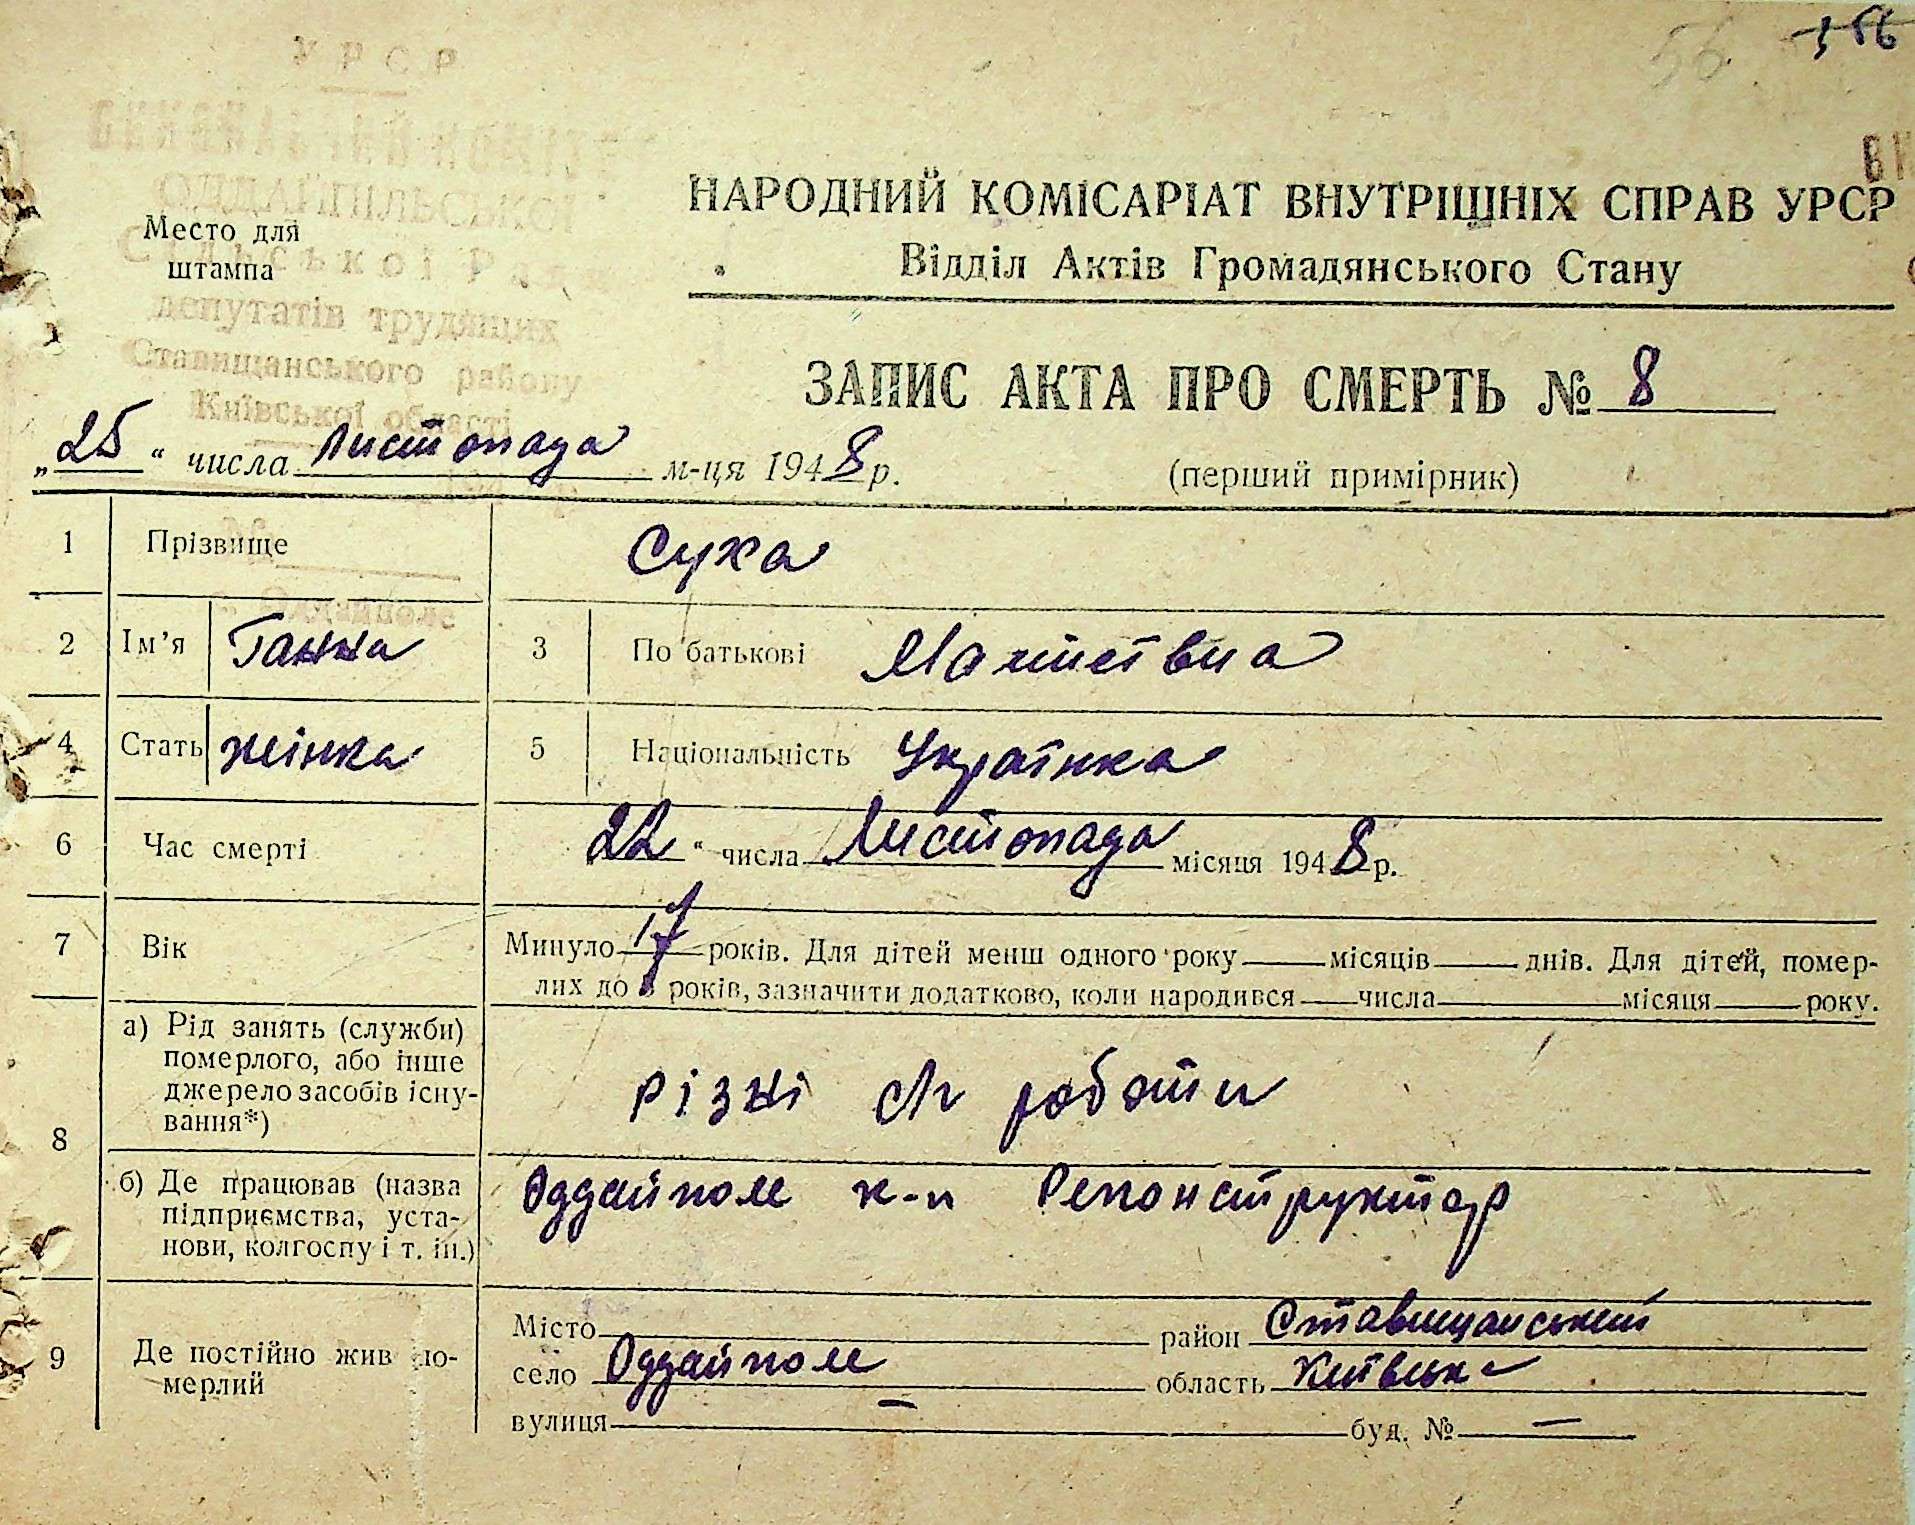 56 156
УРСР
ВИКОНАВЧИЙ КОМІТЕТ
ОДДАЙПІЛЬСЬКОЇ
Сільської Ради
депутатів трудящих
Ставищанського району
Київської області
с. Оддайполе
Место для
штампа
НАРОДНИЙ КОМІСАРІАТ ВНУТРІШНІХ СПРАВ УРСР
Відділ Актів Громадянського Стану
ЗАПИС АКТА ПРО СМЕРТЬ № 8
„25“ числа Листопада м-ця 1948 р.
(перший примірник)
1 Прізвище Суха
2 Ім’я Ганна 3 По батькові Матвіївна
4 Стать жінка 5 Національність Українка
6 Час смерті 22 “ числа Листопада місяця 1948 р.
7 Вік Минуло 17 років. Для дітей менш одного року місяців днів. Для дітей, помер-
лих до років, зазначити додатково, коли народився числа місяця року.
8 а) Рід занять (служби)
померлого, або інше
джерело засобів існу-
вання*)
різні роботи
б) Де працював (назва
підприємства, уста-
нови, колгоспу і т. ін.)
Оддайполе к-п Реконструктор
9 Де постійно жив по-
мерлий
Місто район Ставищанський
село Оддайполе область Київська
вулиця — буд. № —